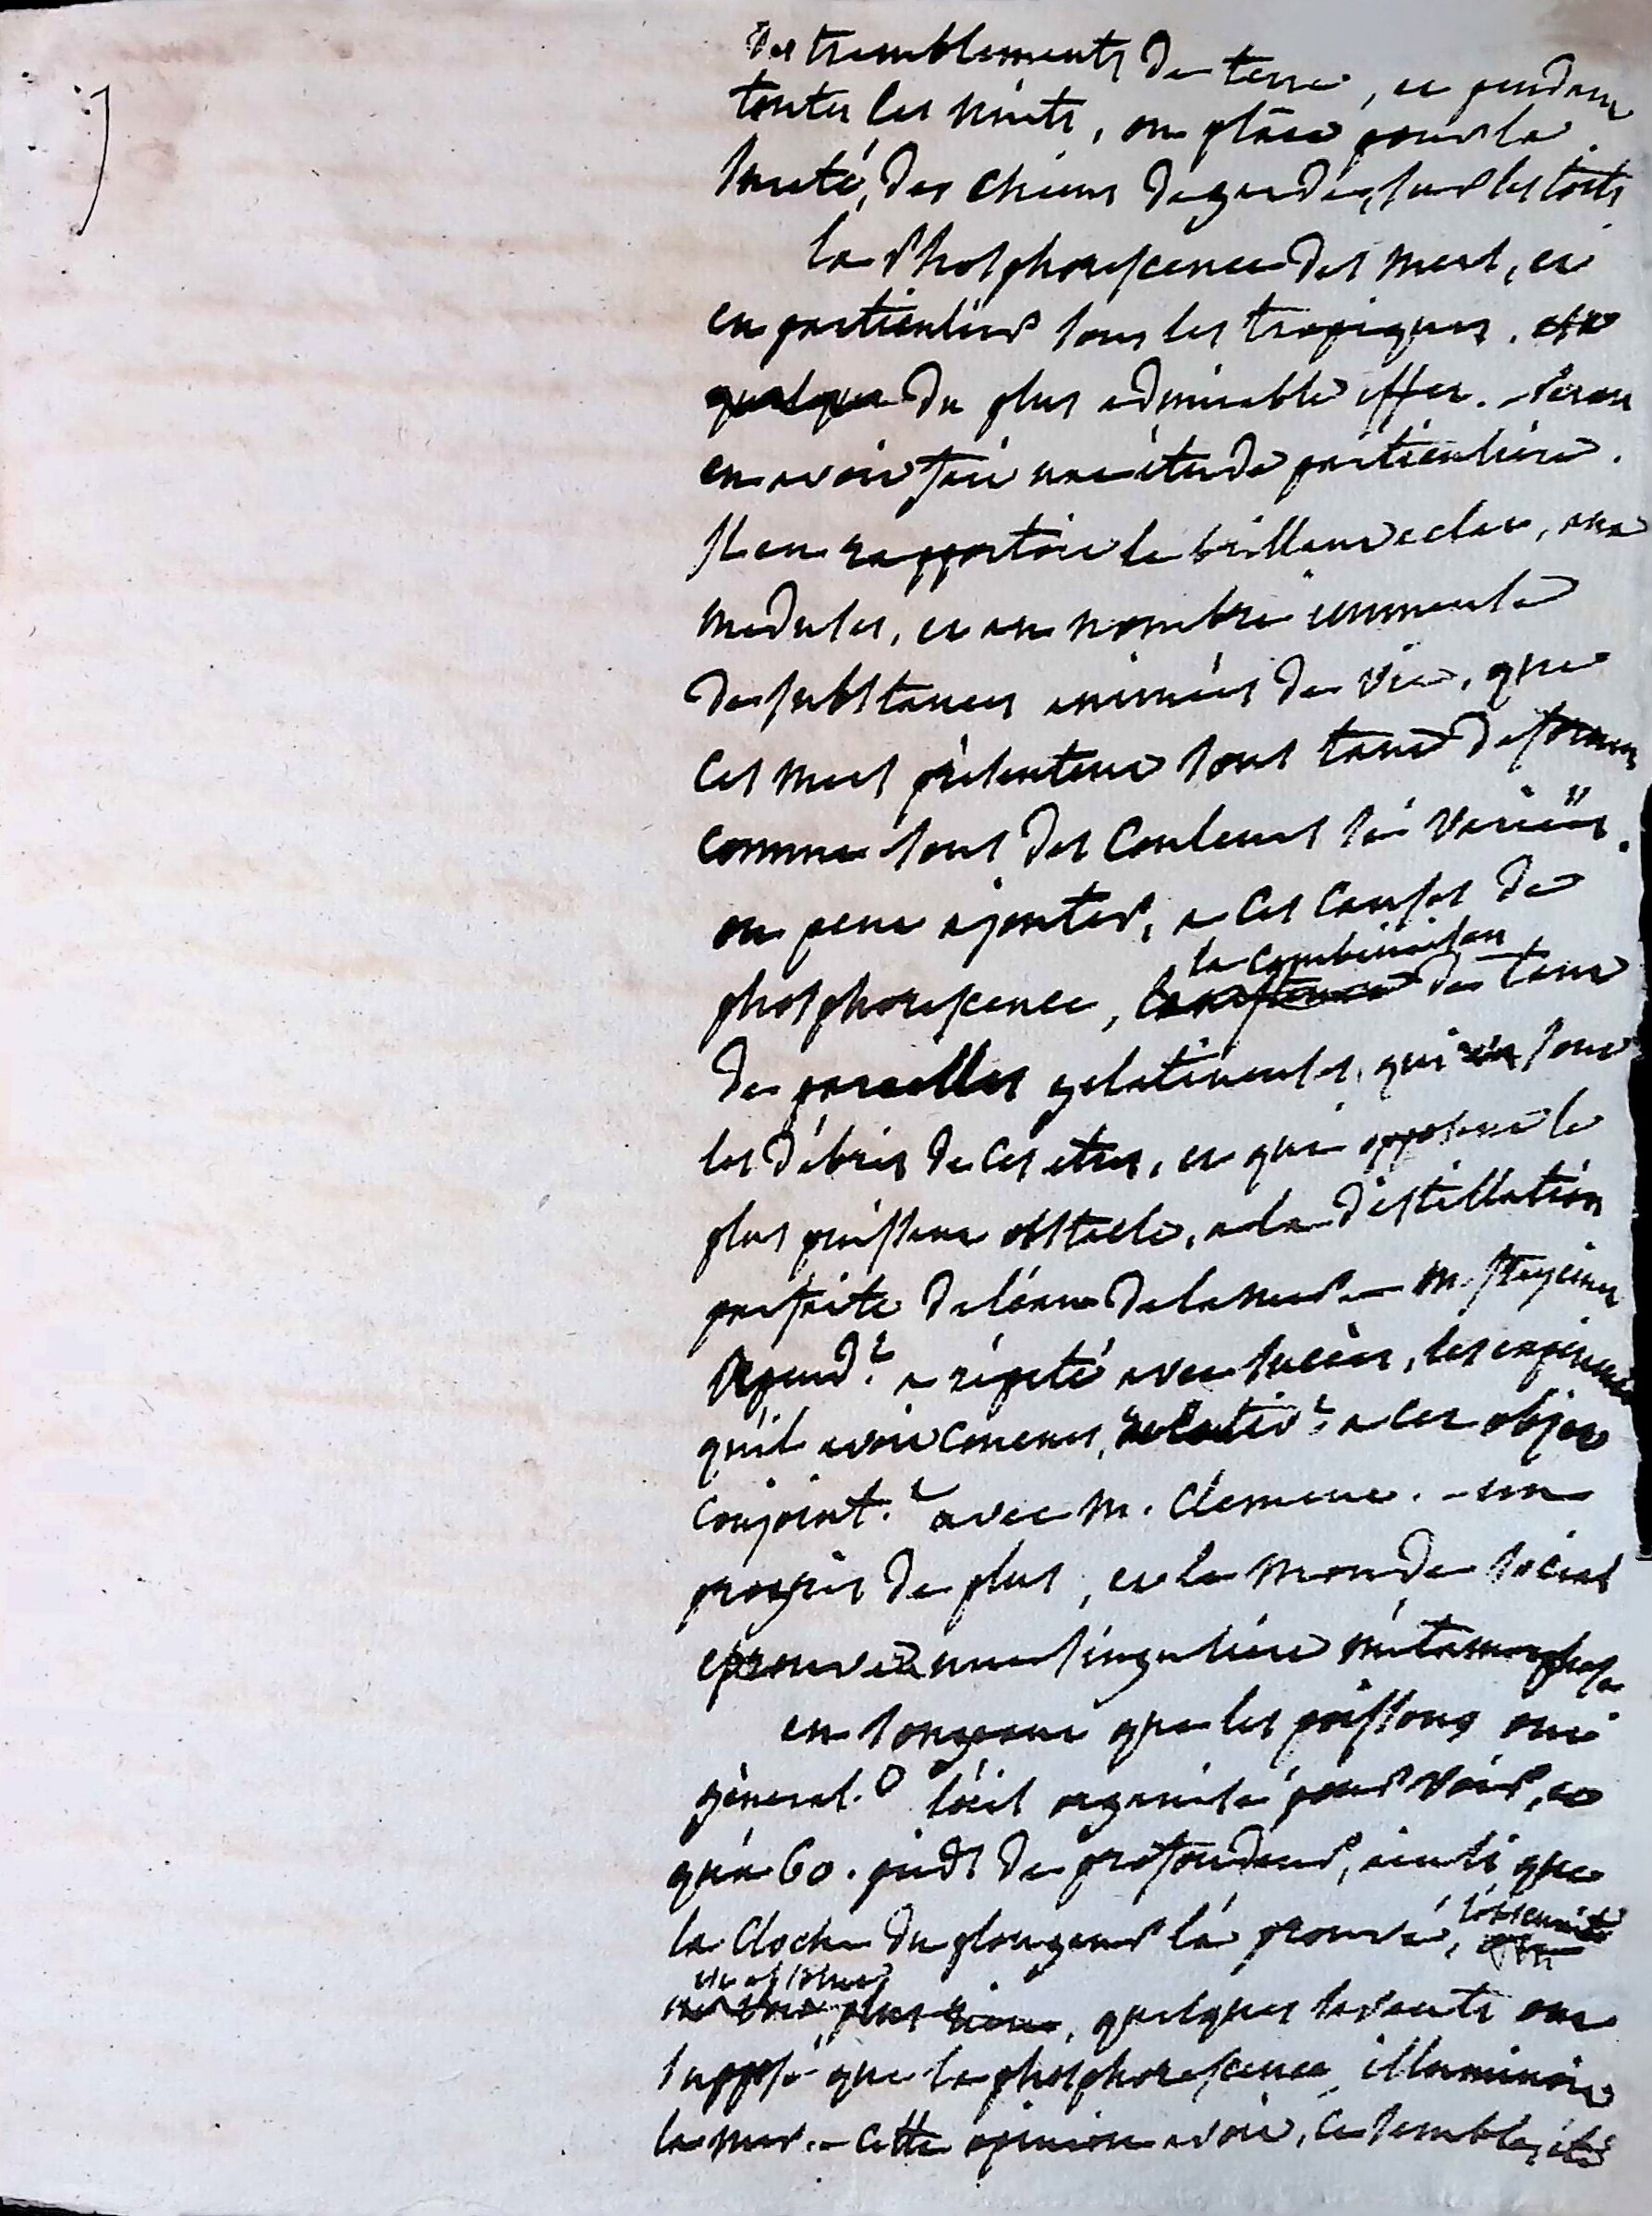 des tremblements de terre, et pendant
toutes les nuits, on place pour la
sureté, des chiens de garde, sur les toits
la Phosphorescence des mers, est
en particulier sous les tropiques.
quelque du plus admirable effet. - Peron
en avoit fait une étude particulière.
Il en rapportoit le brillant eclat, aux
meduses, et au nombre immense
de substances animées de vie, que
ces mers présentent sous tant de formes
comme sous des couleurs si variées.
on peut ajouter, a ces causes de
la combinaison
phosphorescence, de tant
de parcelles gelatineuses, qui sont
les débris de ces etres, et qui opposent le
plus puissant obstacle, a la distillation
parfaite de l'eau de la mer. - M. freycinet
cepend.t a répété avec succès, les expériences
qu'il avoit concues, relativ.t a cet objet
conjoint.t avec M. Clement. - un
progrès de plus, et le monde social
eprouve une singulière métamorphose
en songeant que les poissons ont
général.t l'œil organisé pour voir, et
qu'a 60. pieds de profondeur, ainsi que
la cloche du plongeur l'a prouvé, l'obscurité
est absolue
quelques savants ont
supposé que la phosphorescence illuminoit
la mer. - cette opinion avoit, ce semble, été